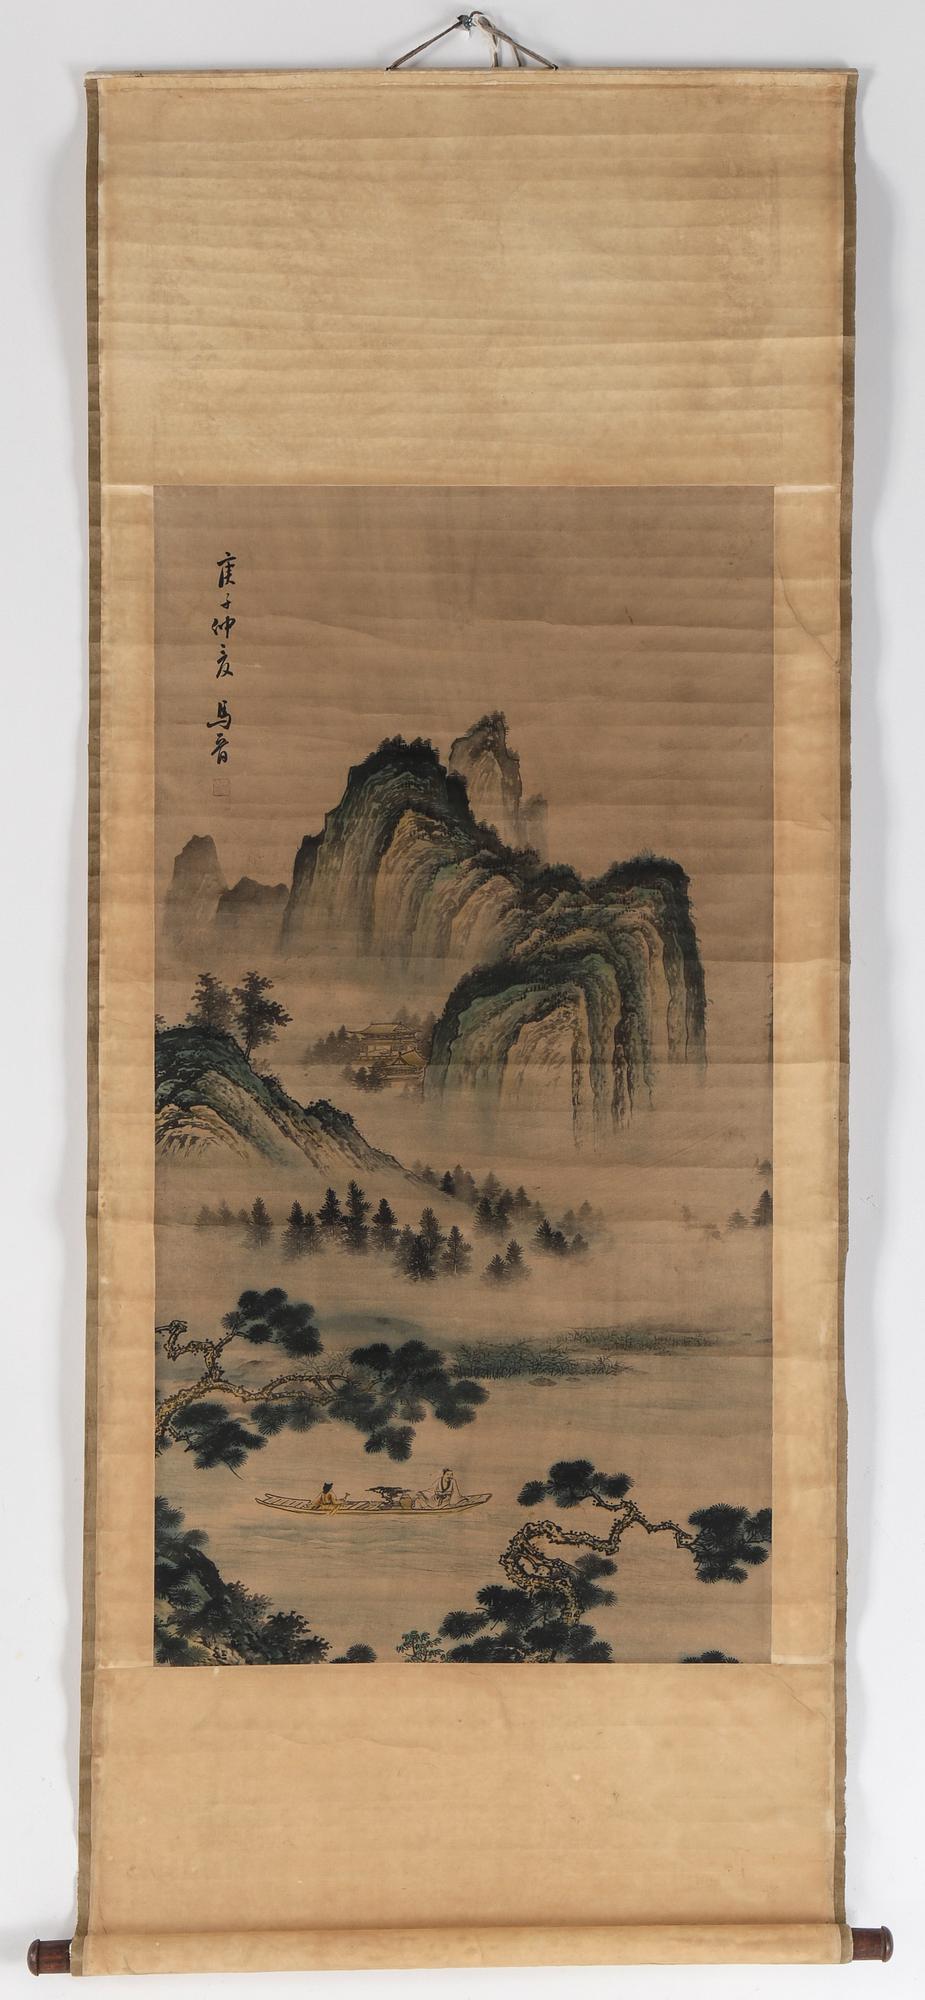 庚子仲夏 馬晋